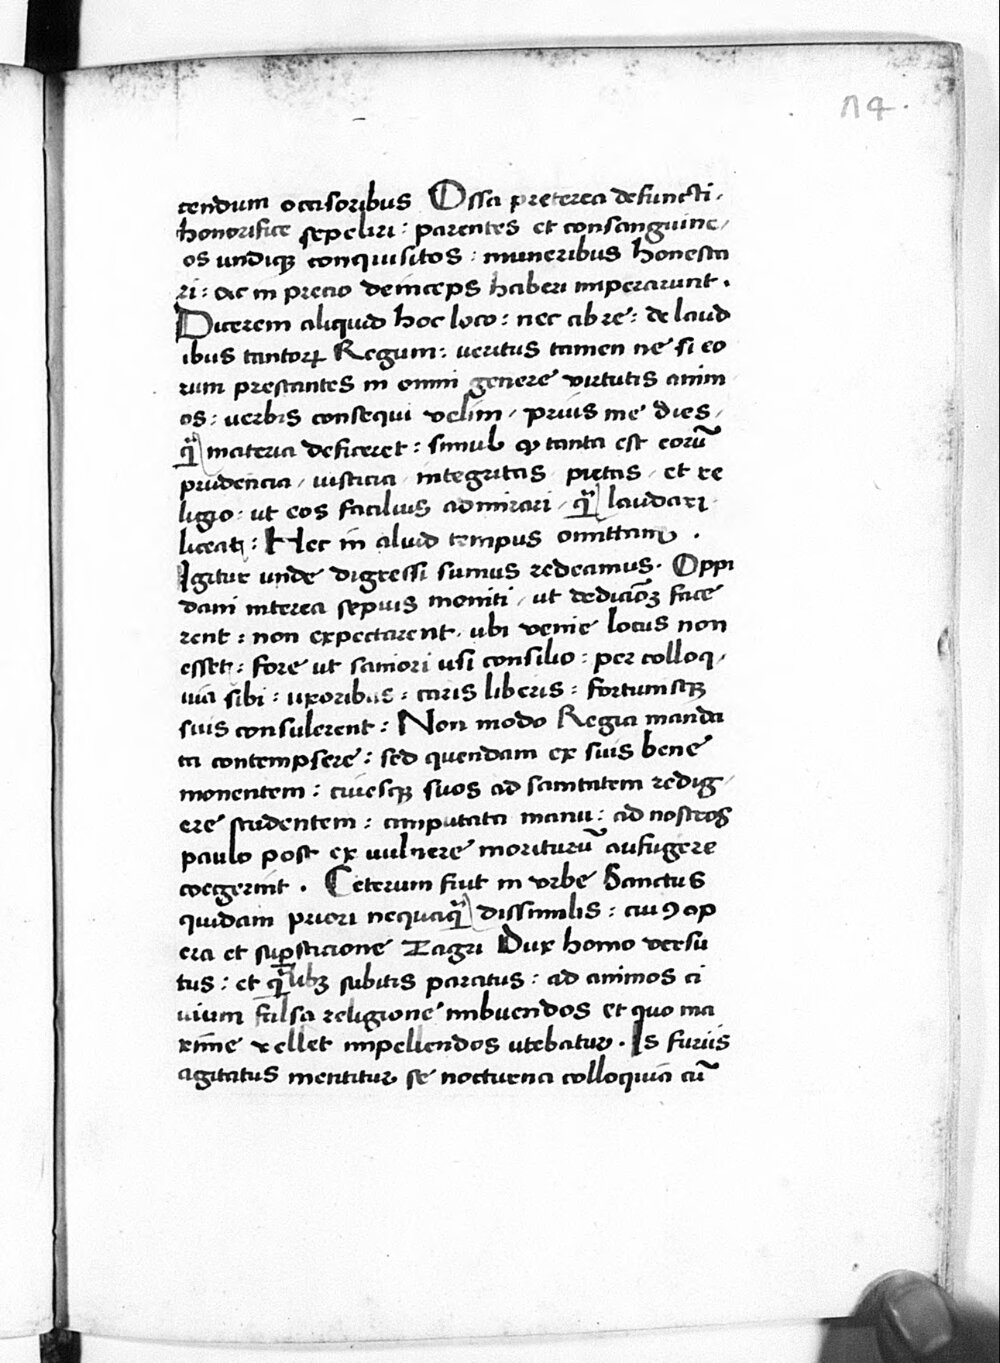 114.
cendum occisoribus Ossa preterea defuncti,
honorifice sepeliri: parentes et consanguine,
os undiqꝫ conquisitos: muneribus honesta
ri: ac in precio deinceps haberi imperarunt.
Dicerem aliquid hoc loco: nec ab re: de laud
ibus tantoꝝ Regum: veritus tamen ne si eo
rum prestantes in omni genere virtutis anim
os: verbis consequi velim, prius me dies,
q̃ materia deficeret: simul ꝙ tanta est eorũ
prudencia, iusticia, integritas, pietas, et re
ligio: ut eos facilius admirari, q̃ laudari
liceat: Hec in aliud tempus omittam.
Igitur unde digressi sumus redeamus. Oppi
dani interea sepius moniti, ut dedicõꝫ face
rent: non expectarent, ubi venie locus non
esset: fore ut saniori usi consilio: per colloq,
uia sibi: uxoribus: caris liberis: fortunisqꝫ
suis consulerent: Non modo Regia manda
ta contempsere: sed quendam ex suis bene
monentem: ciuesqꝫ suos ad sanitatem redig,
ere studentem: amputata manu: ad nostros
paulo post ex uulnere moriturũ aufugere
coegerint. Ceterum fuit in urbe Sanctus
quidam priori nequaq̃ dissimilis: cuiꝯ op
era et suꝑsticione Zagri Dux homo versu
tus: et q̃ibꝫ subitis paratus: ad animos ci
uium falsa religione imbuendos et quo ma
xime vellet impellendos utebatur. Is furiis
agitatus mentitur se nocturna colloquia cũ